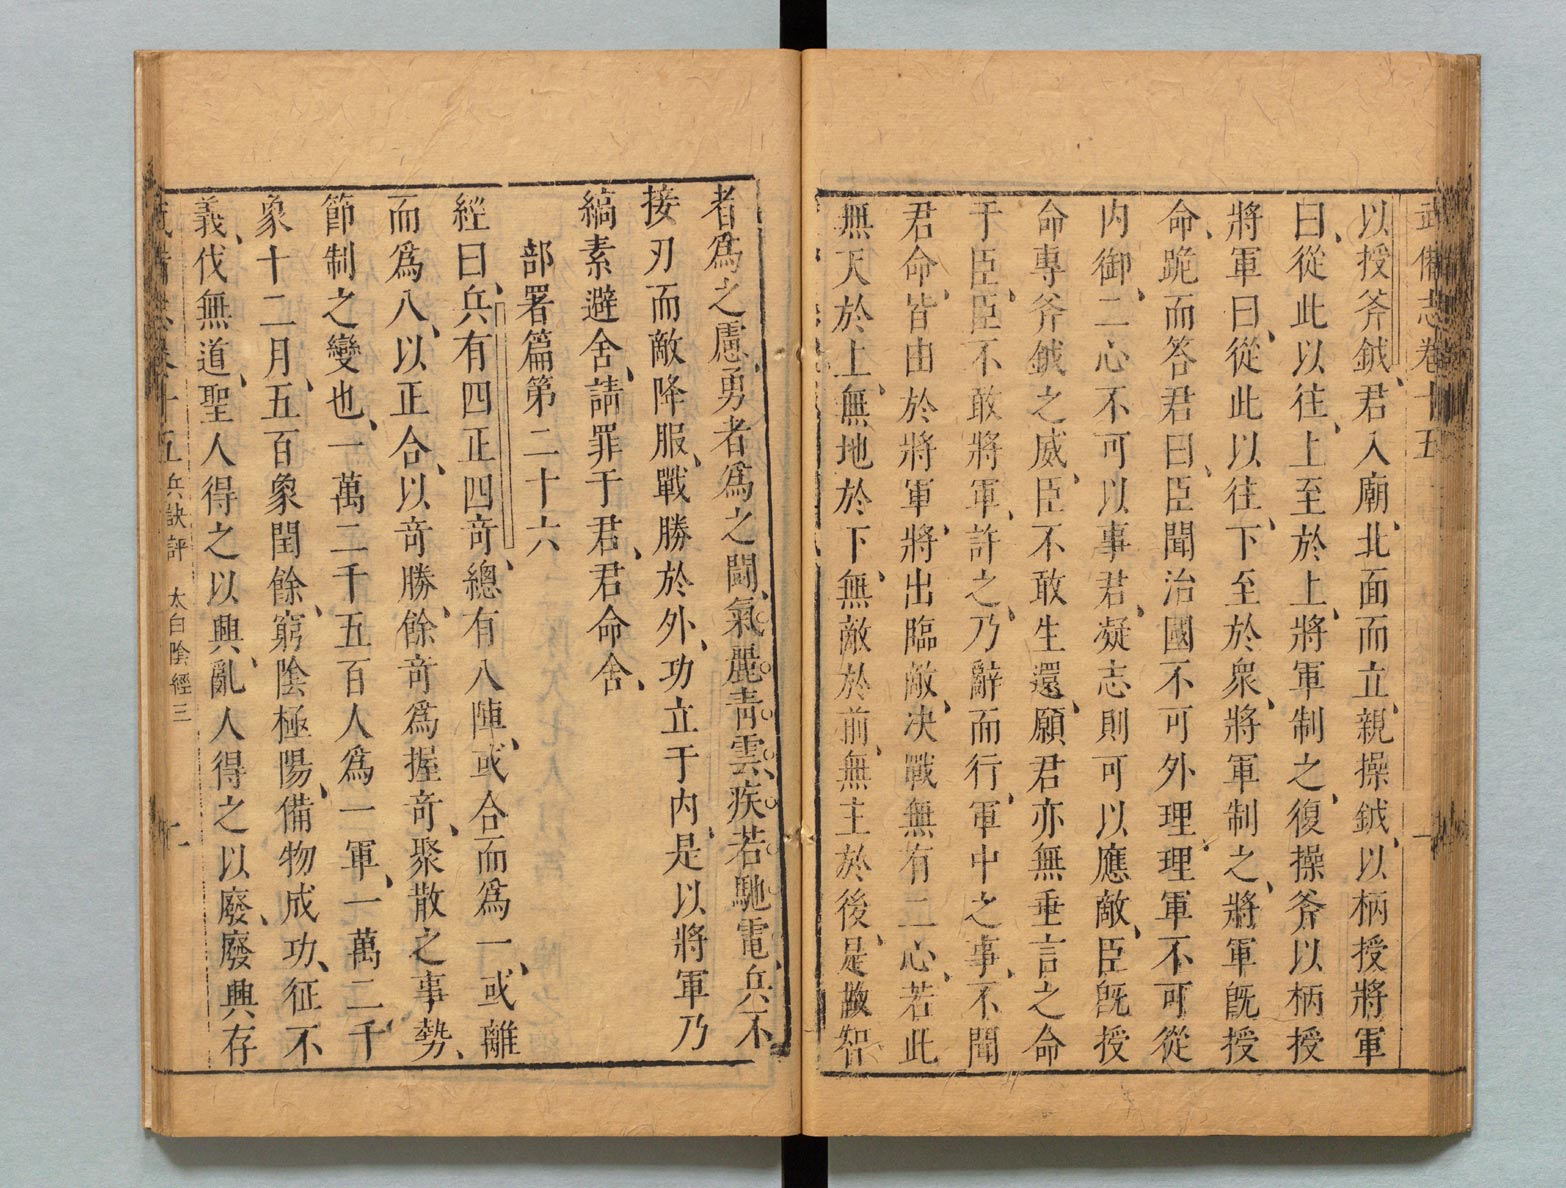 武備志卷十五
以授斧鉞、君入廟、北面而立、親操鉞、以柄授將軍
曰、從此以往、上至於上、將軍制之、復操斧以柄授
將軍曰、從此以往、下至於衆、將軍制之、將軍旣授
命、跪而答君曰、臣聞治國不可外理、理軍不可從
内御、二心不可以事君、凝志則可以應敵、臣旣授
命專斧鉞之威、臣不敢生還、願君亦無垂言之命
于臣、臣不敢將軍、許之、乃辭而行、軍中之事、不聞
君命、皆由於將軍、將出臨敵、决戰無有二心、若此
無天於上、無地於下、無敵於前、無主於後、是故智
者爲之慮、勇者爲之鬪、氣麗青雲、疾若馳電、兵不
接刃而敵降服、戰勝於外、功立于内、是以將軍乃
縞素避舍、請罪于君、君命舍、
部署篇第二十六
經曰、兵有四正四竒、總有八陣、或合而爲一、或離
而爲八、以正合、以竒勝、餘竒爲握竒、聚散之事勢、
節制之變也、一萬二千五百人爲一軍、一萬二千
象十二月、五百象閏餘、窮陰極陽、備物成功、征不
義、伐無道、聖人得之以興、亂人得之以廢、廢興存
武備志卷十五 兵訣評 太白陰經三